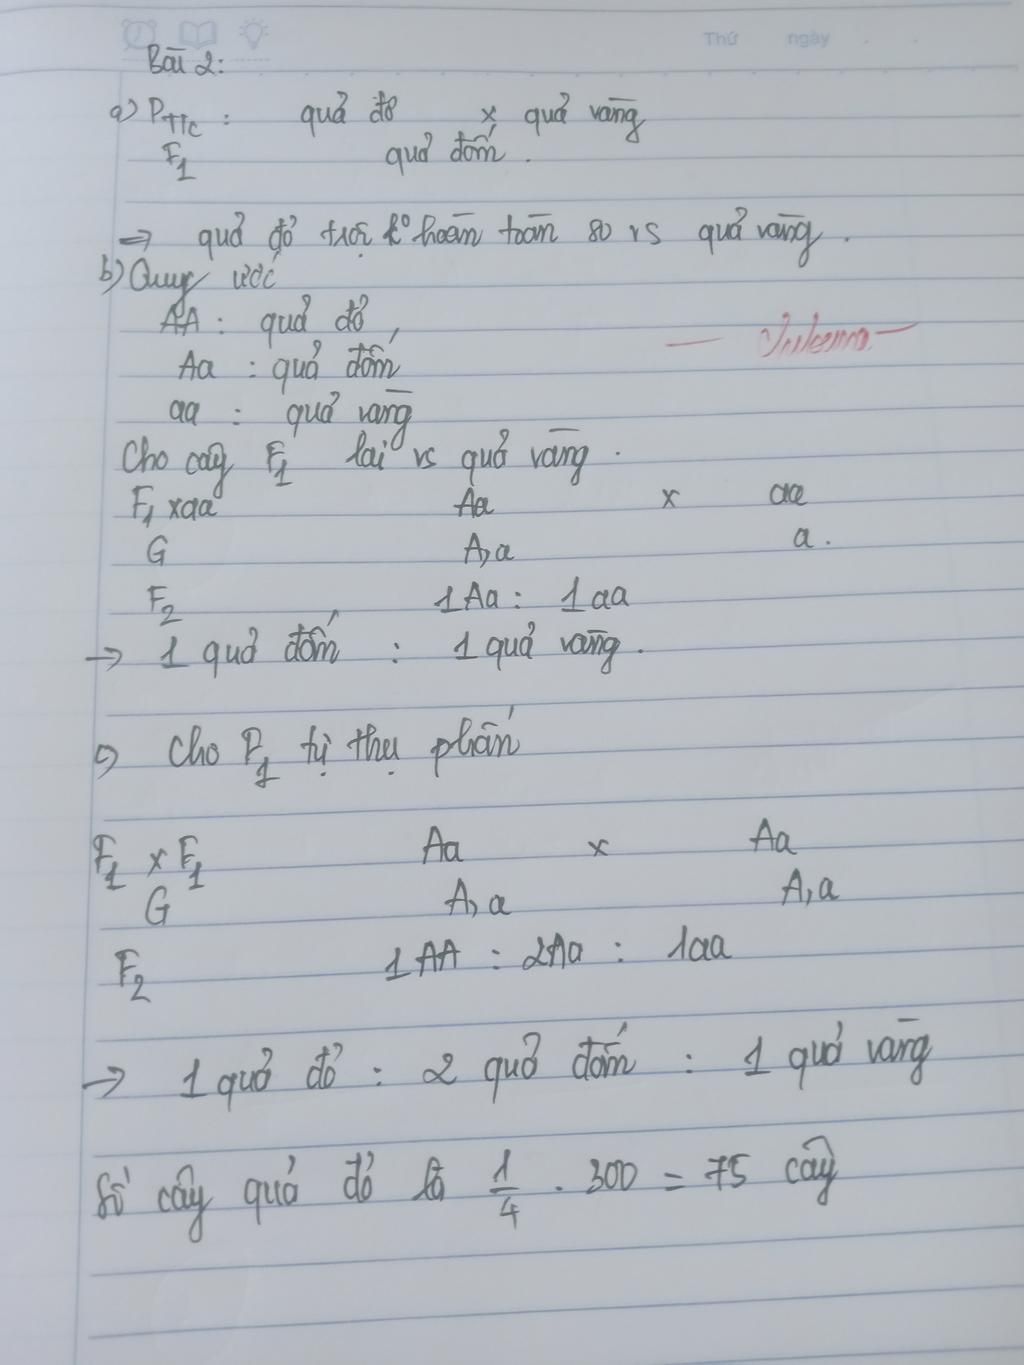 Thứ ngày
Bài 2:
a) PTTC : quả đỏ x quả vàng
F1 quả đốm.
=> quả đỏ trội k° hoàn toàn so vs quả vàng.
b) Quy ước
AA : quả đỏ
Aa : quả đốm
aa : quả vàng
Cho cây F1 lai vs quả vàng.
F1 x aa Aa x aa
G A, a a.
F2 1Aa : 1aa
→ 1 quả đốm : 1 quả vàng.
c) Cho F1 tự thụ phấn
F1 x F1 Aa x Aa
G A, a A, a
F2 1AA : 2Aa : 1aa
→ 1 quả đỏ : 2 quả đốm : 1 quả vàng
Số cây quả đỏ là 1/4 . 300 = 75 cây